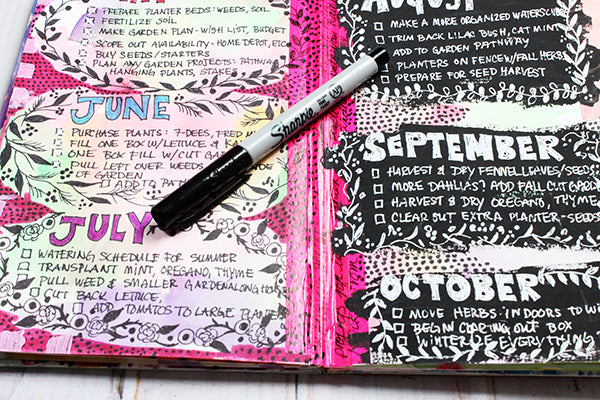 PREPARE PLANTER BEDS: WEEDS, SOIL
FERTILIZE SOIL
MAKE GARDEN PLAN - WISH LIST, BUDGET
SCOPE OUT AVAILABILITY - HOME DEPOT, ETC
BUY SEEDS/STARTERS
PLAN ANY GARDEN PROJECTS: PATHWAY
HANGING PLANTS, STAKES
JUNE
PURCHASE PLANTS: 7-DEES, FRED M
FILL ONE BOX W/LETTUCE & KA
ONE BOX FILL W/CUT GA
PULL LEFT OVER WEEDS
OF GARDEN
ADD TO PA
JULY
WATERING SCHEDULE FOR SUMMER
TRANSPLANT MINT, OREGANO, THYME
PULL WEED & SMALLER GARDEN ALONG HOUSE
CUT BACK LETTUCE,
ADD TOMATOS TO LARGE PLANTER
Sharpie
AUGUST
MAKE A MORE ORGANIZED WATER SCH
TRIM BACK LILAC BUSH, CAT MINT
ADD TO GARDEN PATHWAY
PLANTERS ON FENCE W/FALL HERBS
PREPARE FOR SEED HARVEST
SEPTEMBER
HARVEST & DRY FENNEL LEAVES/SEEDS
MORE DAHLIAS? ADD FALL CUT GARDEN
HARVEST & DRY OREGANO, THYME
CLEAR OUT EXTRA PLANTER - SEEDS
OCTOBER
MOVE HERBS INDOORS TO WI
BEGIN CLEARING OUT BOX
WINTERIZE EVERYTHING